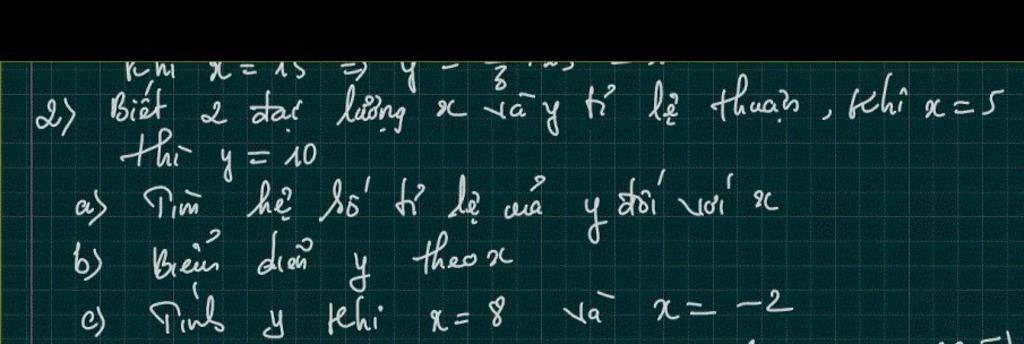 Khi x = 15 => y =
2) Biết 2 đại lượng x và y tỉ lệ thuận, khi x = 5
thì y = 10
a) Tìm hệ số tỉ lệ của y đối với x
b) Biểu diễn y theo x
c) Tính y khi x = 8 và x = -2